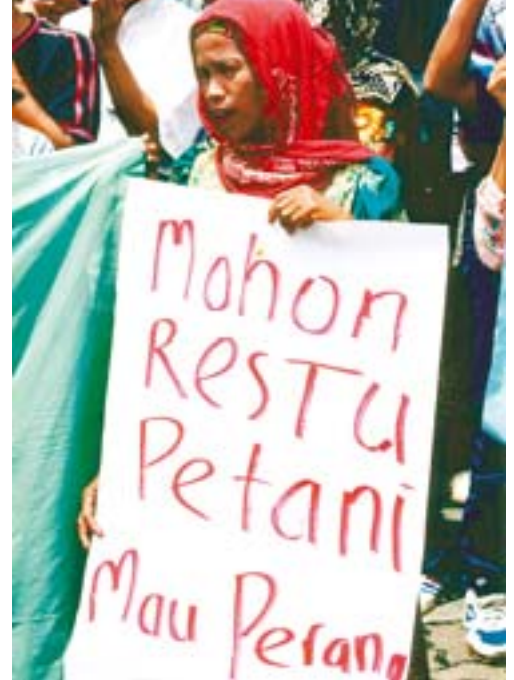 Mohon
RESTU
Petani
Mau Perang